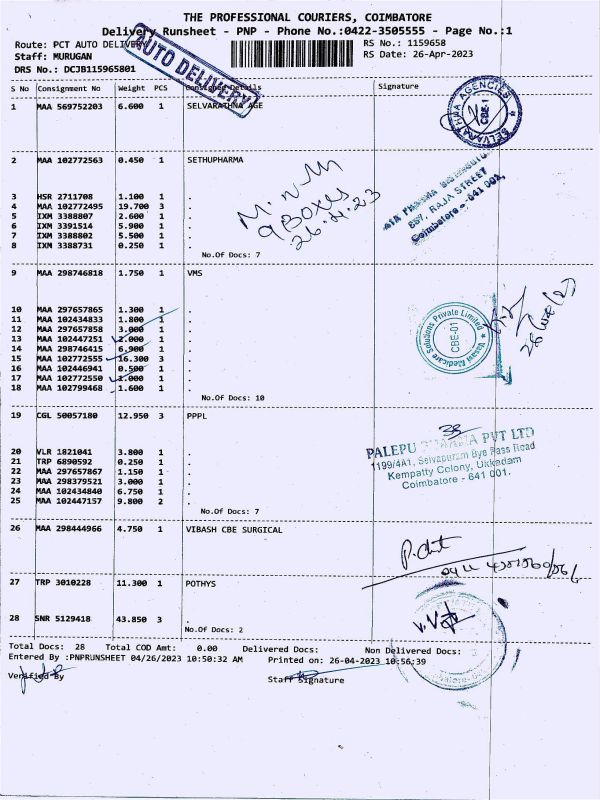 THE PROFESSIONAL COURIERS, COIMBATORE
Delivery Runsheet - PNP - Phone No.:0422-3505555 - Page No.:1
Route: PCT AUTO DELIVERY RS No.: 1159658
Staff: MURUGAN RS Date: 26-Apr-2023
DRS No.: DCJB115965801
AUTO DELIVERY
S No Consignment No Weight PCS Consignee Details Signature
1 MAA 569752203 6.600 1 SELVARATHNA AGE
SELVARATHNA AGENCIES
CBE-1
2 MAA 102772563 0.450 1 SETHUPHARMA
857, RAJA STREET
Coimbatore - 641 001.
M. N M
9 Boxes
26.4.23
3 HSR 2711708 1.100 1 .
4 MAA 102772495 19.700 3 .
5 IXM 3388807 2.600 1 .
6 IXM 3391514 5.900 1 .
7 IXM 3388802 5.500 1 .
8 IXM 3388731 0.250 1 .
No.Of Docs: 7
9 MAA 298746818 1.750 1 VMS
10 MAA 297657865 1.300 1 .
11 MAA 102434833 1.800 1 .
12 MAA 297657858 3.000 1 .
13 MAA 102447251 2.000 1 .
14 MAA 298746415 6.900 1 .
15 MAA 102772555 16.300 3 .
16 MAA 102446941 0.500 1 .
17 MAA 102772550 1.000 1 .
18 MAA 102799468 1.600 1 .
No.Of Docs: 10
Vasavi Medicare Solutions Private Limited
CBE-01
19 CGL 50057180 12.950 3 PPPL
PALEPU PHARMA PVT LTD
1199/4A1, Selvapuram Bye Pass Road
Kempatty Colony, Ukkadam
Coimbatore - 641 001.
20 VLR 1821041 3.800 1 .
21 TRP 6890592 0.250 1 .
22 MAA 297657867 1.150 1 .
23 MAA 298379521 3.000 1 .
24 MAA 102434840 6.750 1 .
25 MAA 102447157 9.800 2 .
No.Of Docs: 7
26 MAA 298444966 4.750 1 VIBASH CBE SURGICAL
27 TRP 3010228 11.300 1 POTHYS
28 SNR 5129418 43.850 3 .
No.Of Docs: 2
Total Docs: 28 Total COD Amt: 0.00 Delivered Docs: Non Delivered Docs:
Entered By :PNPRUNSHEET 04/26/2023 10:50:32 AM Printed on: 26-04-2023 10:56:39
Verified By Staff Signature